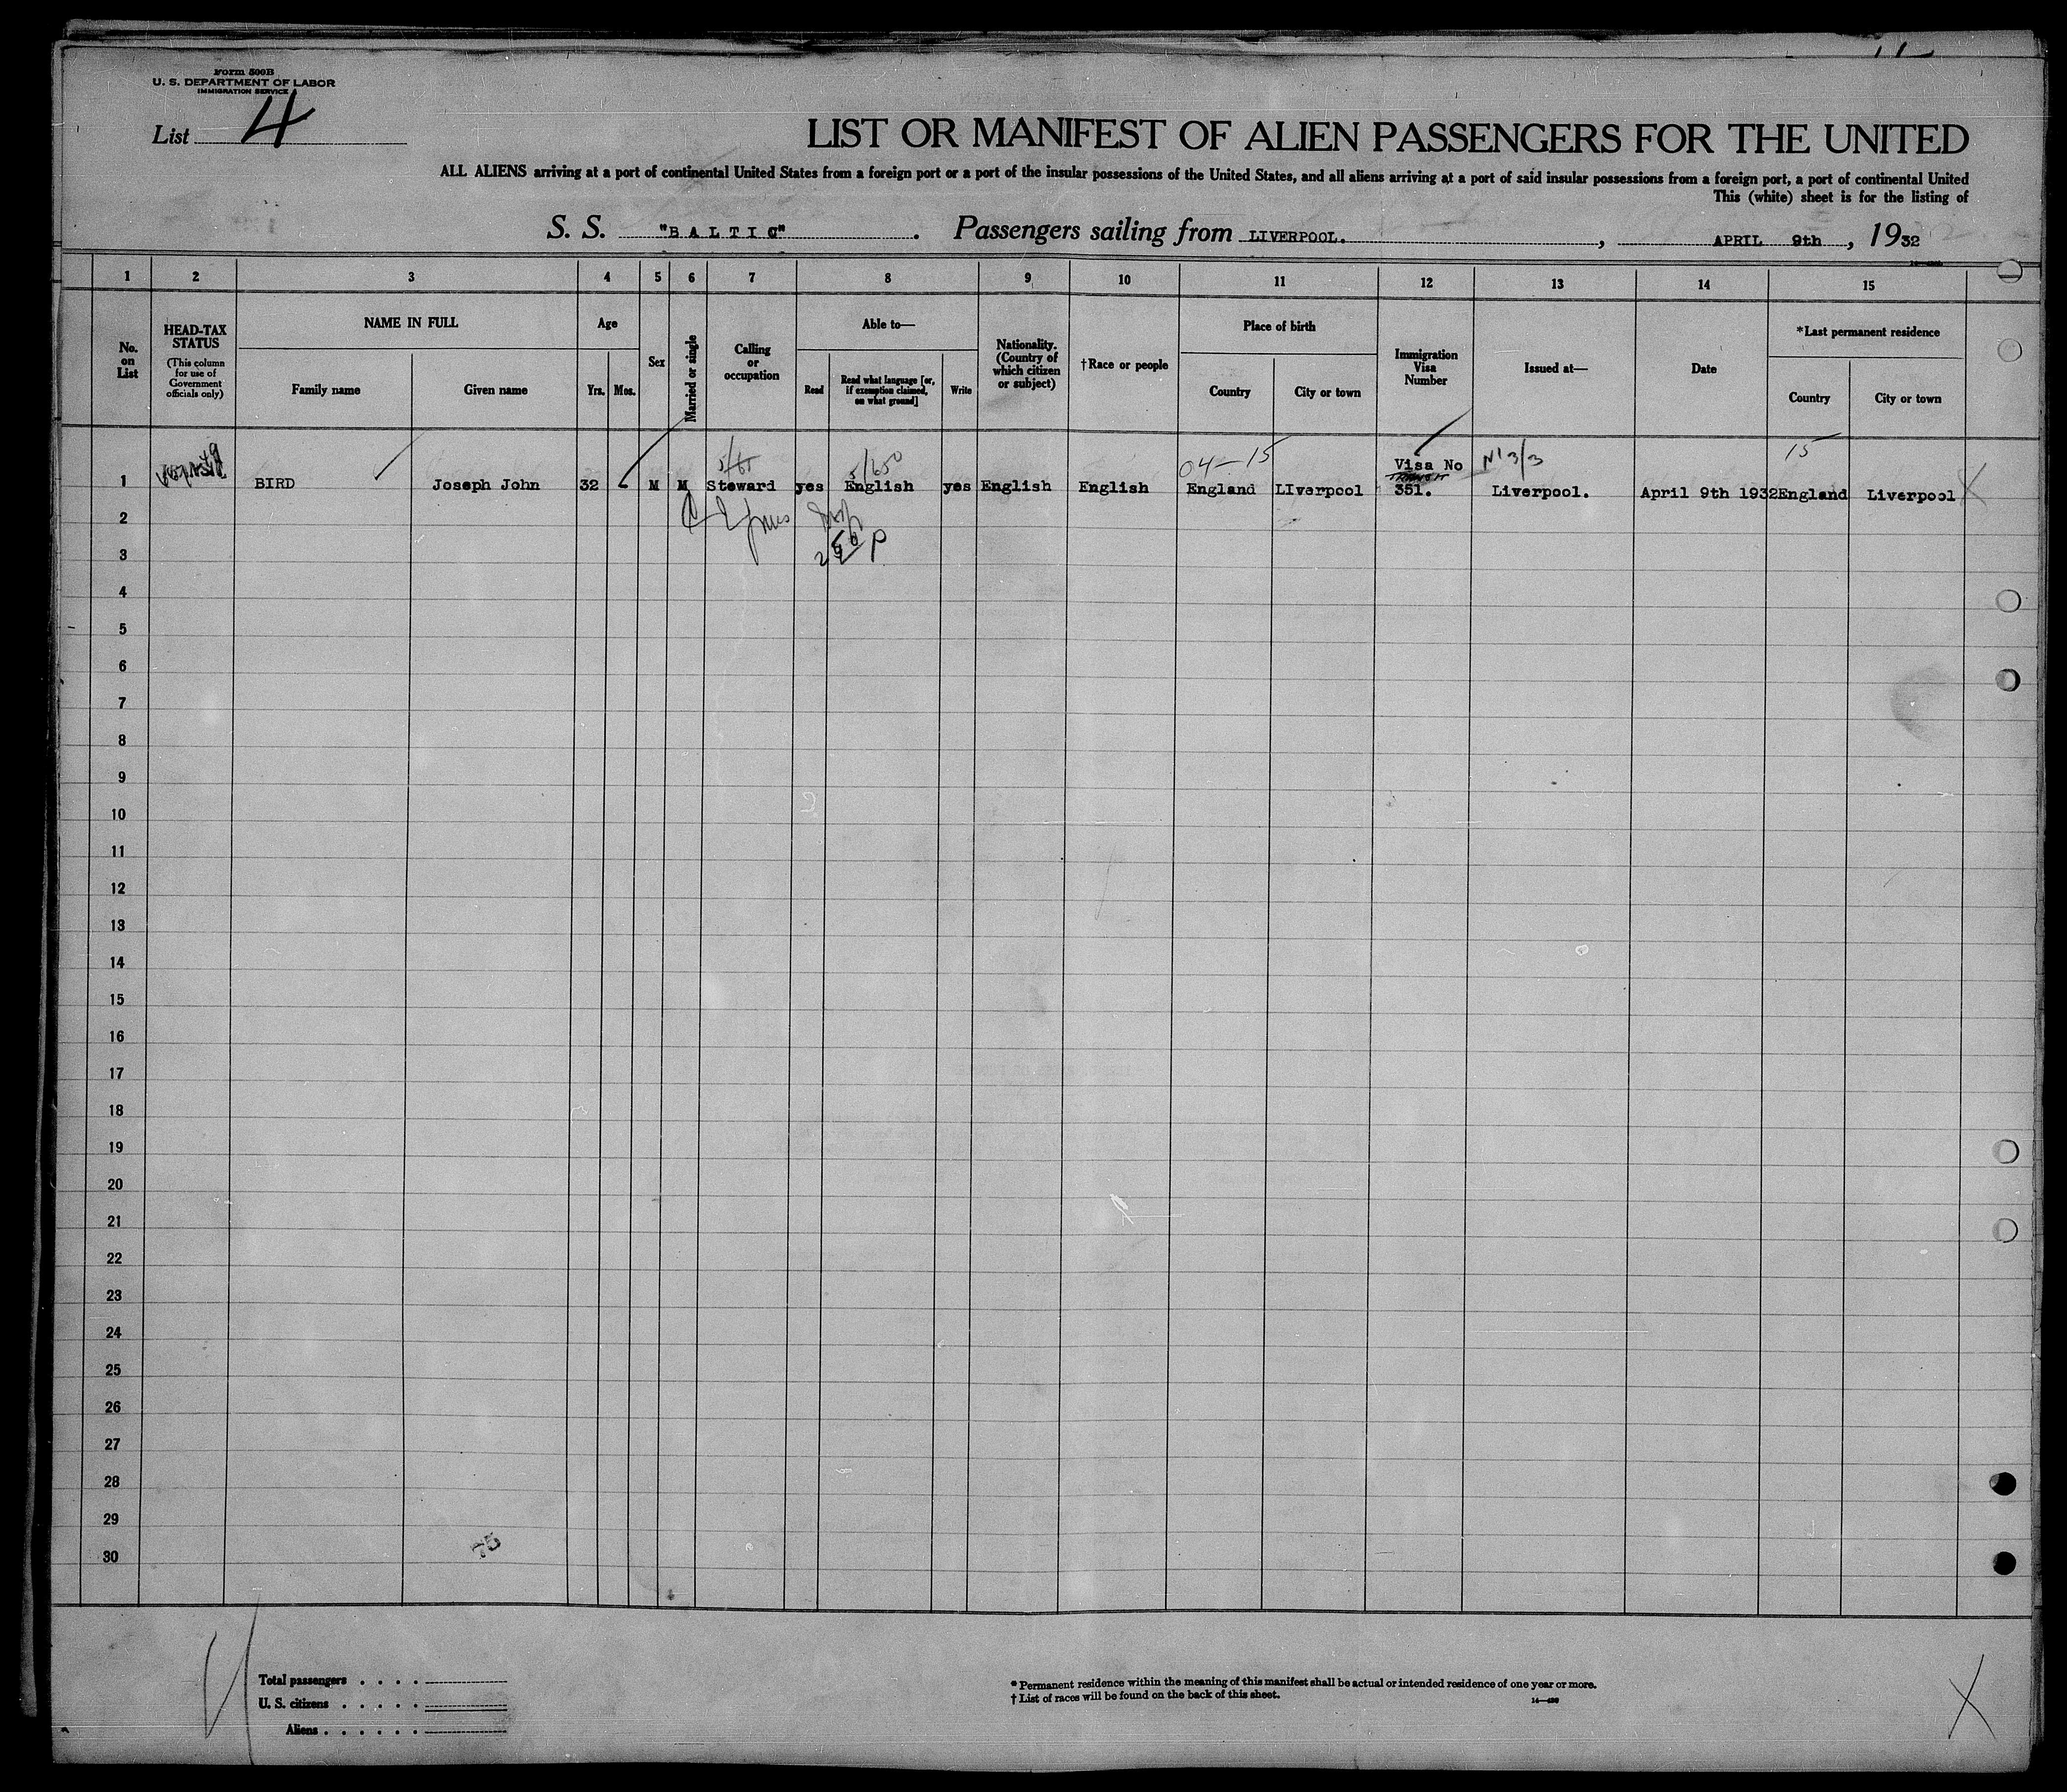 Form 500B
U. S. DEPARTMENT OF LABOR
IMMIGRATION SERVICE
List 4
LIST OR MANIFEST OF ALIEN PASSENGERS FOR THE UNITED
ALL ALIENS arriving at a port of continental United States from a foreign port or a port of the insular possessions of the United States, and all aliens arriving at a port of said insular possessions from a foreign port, a port of continental United
This (white) sheet is for the listing of
S. S. "BALTIC". Passengers sailing from LIVERPOOL., APRIL 9th, 1932
1 2 3 4 5 6 7 8 9 10 11 12 13 14 15
No. on List
HEAD-TAX STATUS
(This column for use of Government officials only)
NAME IN FULL
Family name
Given name
Age
Yrs.
Mos.
Sex
Married or single
Calling or occupation
Able to—
Read
Read what language [or, if exemption claimed, on what ground]
Write
Nationality. (Country of which citizen or subject)
†Race or people
Place of birth
Country
City or town
Immigration Visa Number
Issued at—
Date
*Last permanent residence
Country
City or town
04-15
15
Visa No
1 BIRD Joseph John 32 M M Steward yes English yes English English England LIverpool 351. Liverpool. April 9th 1932 England Liverpool
2
3
4
5
6
7
8
9
10
11
12
13
14
15
16
17
18
19
20
21
22
23
24
25
26
27
28
29
30
75
Total passengers . . . .
U. S. citizens . . . . .
Aliens . . . . . .
* Permanent residence within the meaning of this manifest shall be actual or intended residence of one year or more.
† List of races will be found on the back of this sheet.